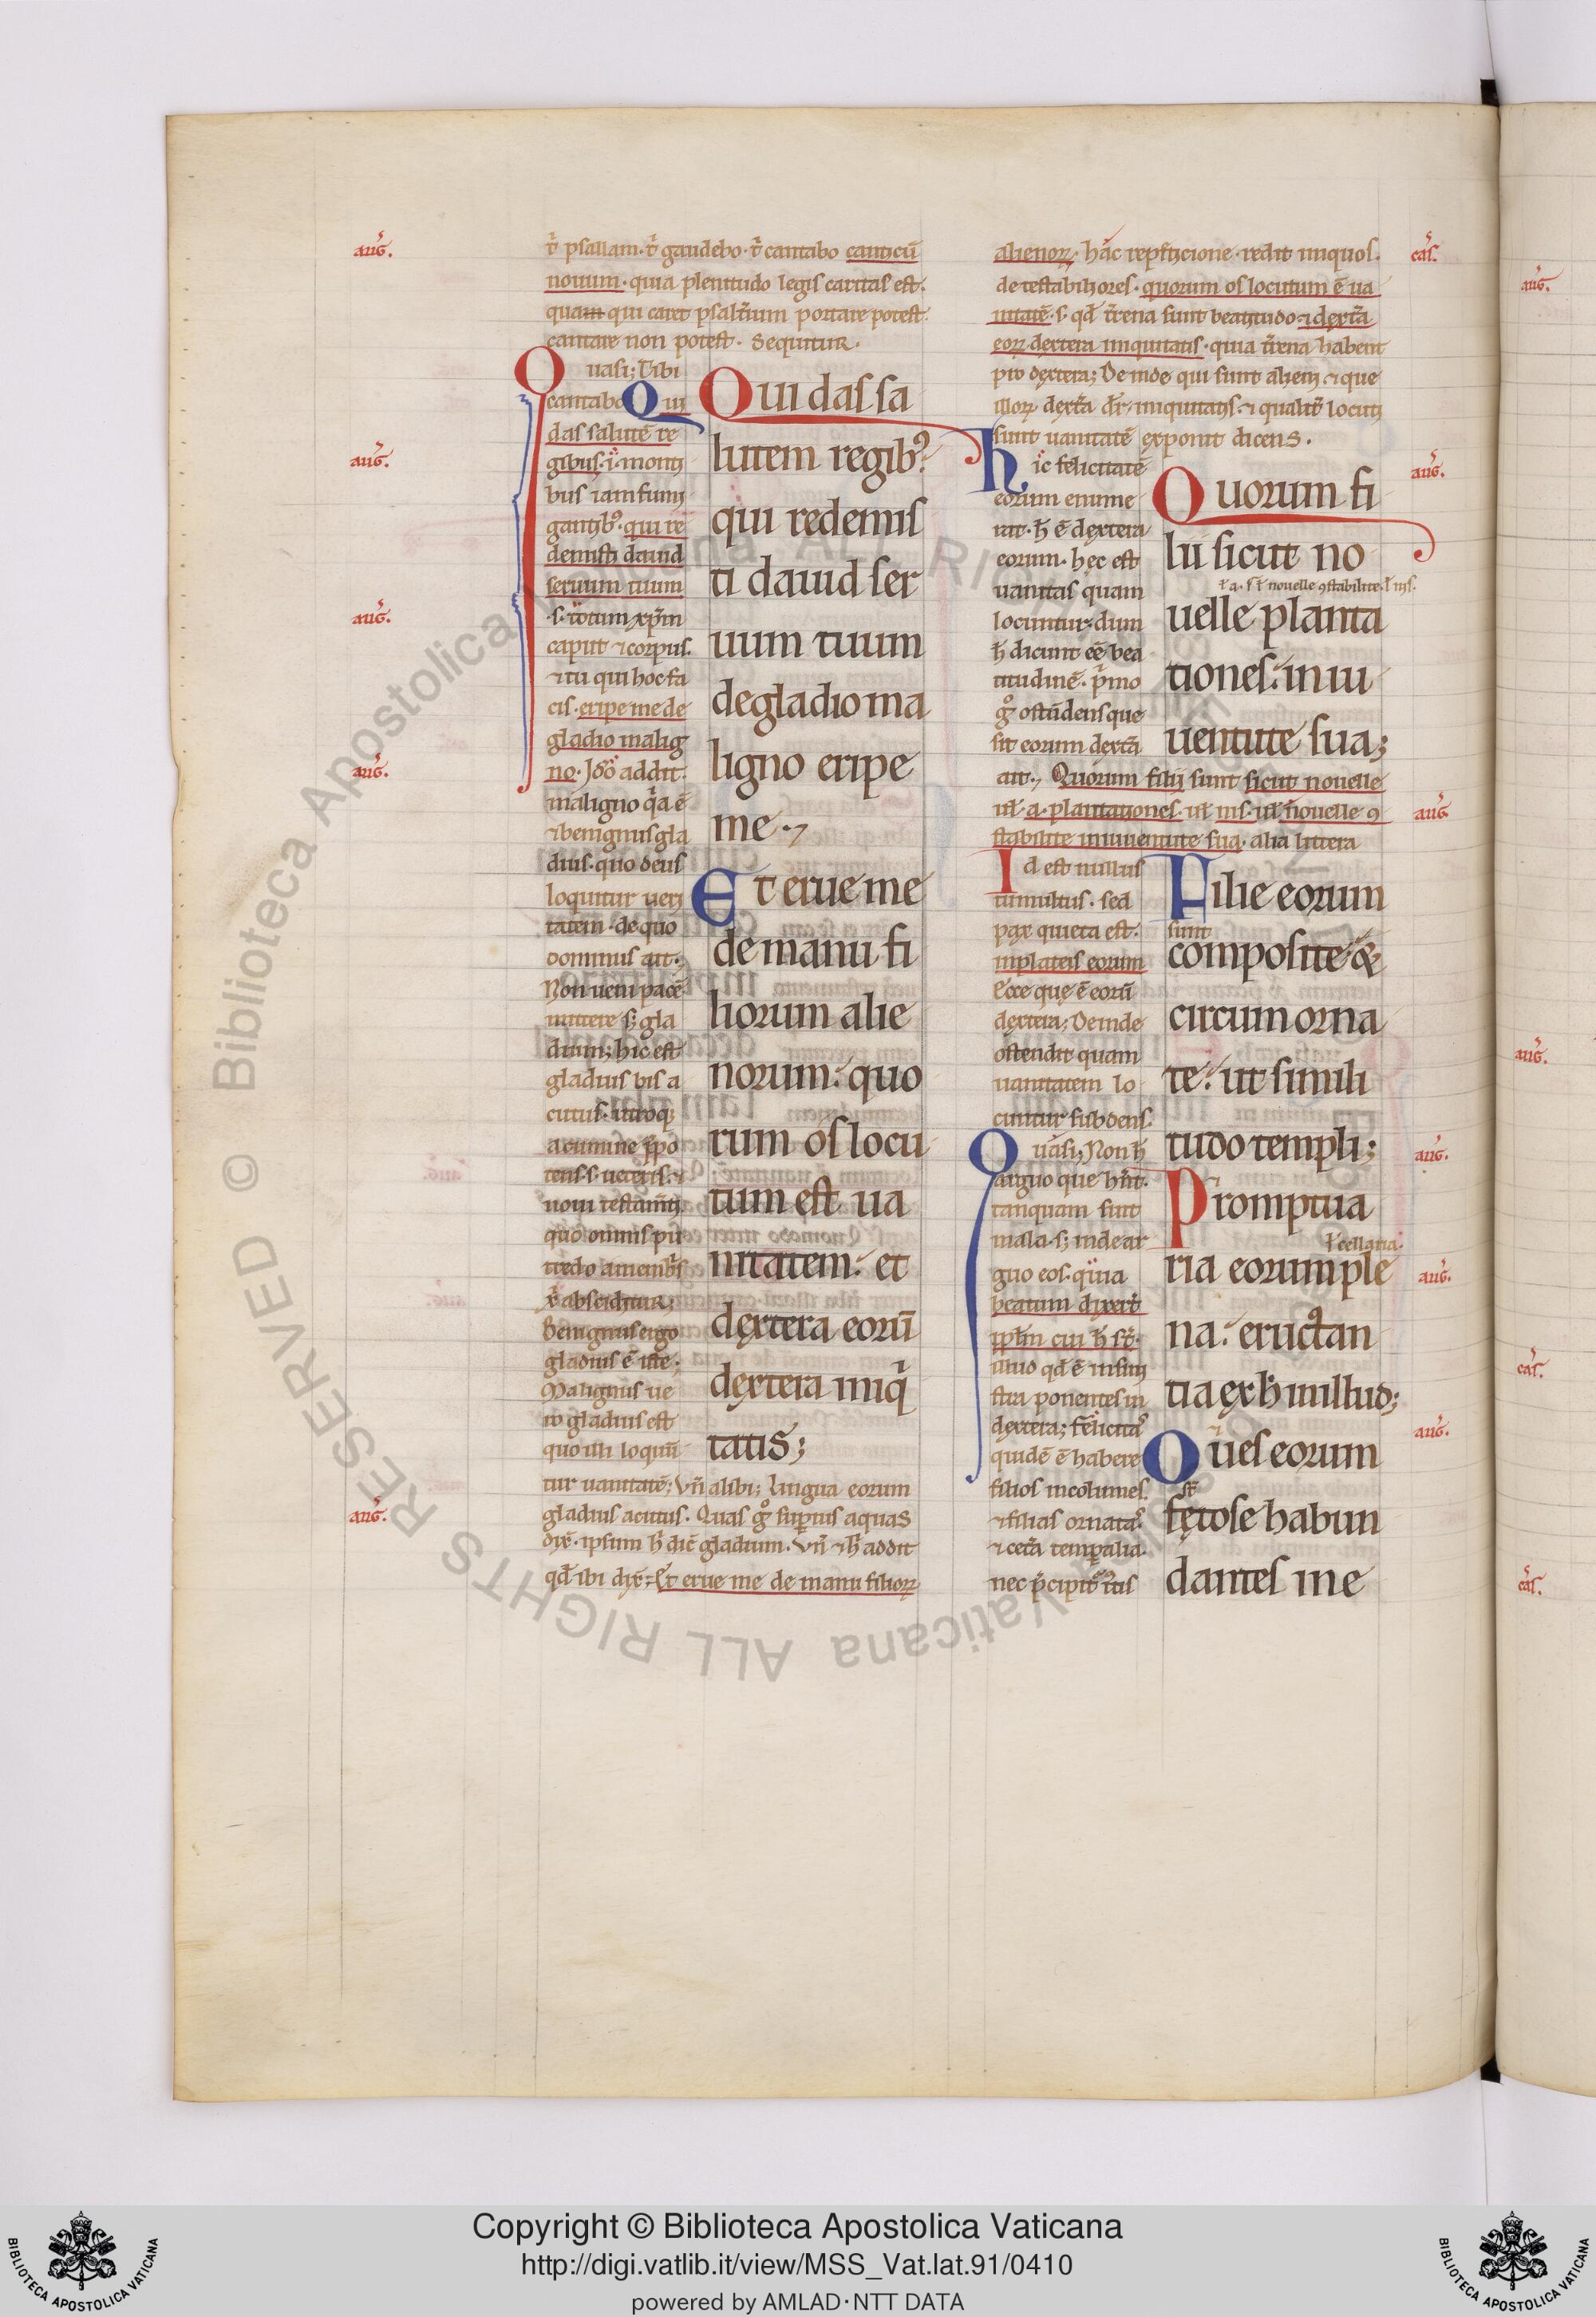 t̄ psallam. t̄ gaudebo. t̄ cantabo canticū
nouum. quia plenitudo legis caritas est.
quam qui caret psalt̄ium portare potest
cantare non potest. Sequitur.
Quasi; Tibi
cantabo Qui
das salutē re
gibus. i. monti
bus iam fumi
gantibꝰ. qui re
demisti dauid
seruum tuum
.s. totum xp̄m
caput ⁊ corpus.
⁊ tu qui hoc fa
cis. eripe me de
gladio malig
no. Iđo addit.
maligno q̄a ē
⁊ benignus gla
dius. quo deus
loquitur ueri
tatem. de quo
dominus ait.
Non ueni pacē
mittere s; gla
dium; hic est
gladius bis a
cutus. utroq;
acumine p̄po
tens. s. ueteris. ⁊
noui testam̄ti
quo omnis pu
tredo a memb̄s
x̄ absciditur;
Benignus ergo
gladius ē iste;
Malignus ue
ro gladius est
quo illi loqun̄
tur uanitatē; Vn̄ alibi; lingua eorum
gladius acutus. Quas gͦ sup̄ius aquas
dix̄. ipsum h̄ dic̄ gladium. Vn̄ ⁊ h̄ addit
qđ ibi dix̄. Et erue me de manu filioꝝ
Qui das sa
lutem regibꝰ.
qui redemis
ti dauid ser
uum tuum
de gladio ma
ligno eripe
me.
Et erue me
de manu fi
liorum alie
norum. quo
rum os locu
tum est ua
nitatem. et
dextera eorū
dextera iniq̄
tatis;
alienoꝝ. hac repeticione redit iniquos.
detestabiliores. quorum os locutum ē ua
nitatē. s. qđ t̄rena sunt beatitudo ⁊ dext̄a
eoꝝ dextera iniquitatis. quia t̄rena habent
pro dextera; Deinde qui sunt alieni ⁊ que
illoꝝ dext̄a dr̄ iniquitatis. ⁊ qualit̄ locuti
sunt uanitatē exponit dicens.
Hic felicitatē
eorum enume
rat. h̄ ē dextera
eorum. hec est
uanitas quam
locuntur. dum
h̄ dicunt eē bea
titudinē. p̄mo
gͦ ostēdens que
sit eorum dext̄a
ait. Quorum filij sunt sicut nouelle
ul̄. a. plantationes. ul̄ nis. ul̄ nouelle 9
stabilite in iuuentute sua. alia littera
Id est nullus
tumultus. sed
pax quieta est.
in plateis eorum
Ecce que ē eorū
dextera; Deinde
ostendit quam
uanitatem lo
cuntur subdens.
Quasi; Non h̄
arguo que hn̄t.
tanquam sint
mala. s; inde ar
guo eos. q̄ uia
beatum dixer̄t
pp̄lm cui h̄ st̄.
immo qđ ē in sini
stra ponentes in
dextera; felicitaꝰ
quidē ē habere
filios incolumes.
⁊ filias ornataꝰ
⁊ cet̄a temp̄alia.
nec p̄cipit
Quorum fi
lii sicut no
uelle planta
tiones. in iu
uentute sua;
Filie eorum
sunt
composite &
circum orna
te. ut simili
tudo templi;
Promptua
ł cellaria.
ria eorum ple
na. eructan
tia ex h̄ in illud;
Oues eorum
fetose habun
dantes in e
auḡ.
auḡ.
auḡ.
auḡ.
auḡ.
cas̄.
auḡ.
auḡ.
auḡ.
auḡ.
auḡ.
auḡ.
auḡ.
cas̄.
cas̄.
© Biblioteca Apostolica Vaticana ALL RIGHTS RESERVED
Copyright © Biblioteca Apostolica Vaticana
http://digi.vatlib.it/view/MSS_Vat.lat.91/0410
powered by AMLAD·NTT DATA
BIBLIOTECA APOSTOLICA VATICANA
BIBLIOTECA APOSTOLICA VATICANA